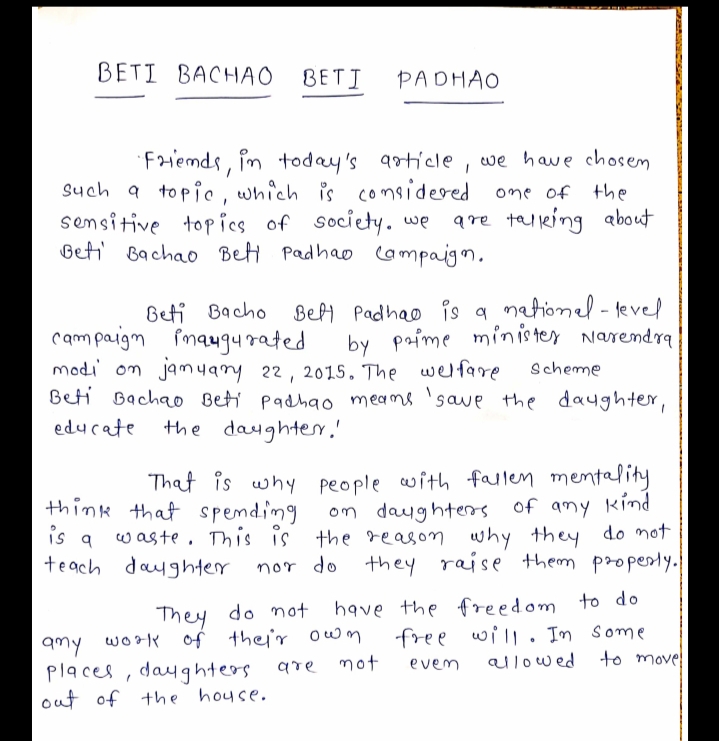 BETI BACHAO BETI PADHAO
Friends, in today's article, we have chosen
such a topic, which is considered one of the
sensitive topics of society. we are talking about
Beti Bachao Beti Padhao Campaign.
Beti Bacho Beti Padhao is a national-level
campaign inaugurated by prime minister Narendra
modi on january 22, 2015. The welfare scheme
Beti Bachao Beti Padhao means 'save the daughter,
educate the daughter.'
That is why people with fallen mentality
think that spending on daughters of any kind
is a waste. This is the reason why they do not
teach daughter nor do they raise them properly.
They do not have the freedom to do
any work of their own free will. In some
places, daughters are not even allowed to move
out of the house.